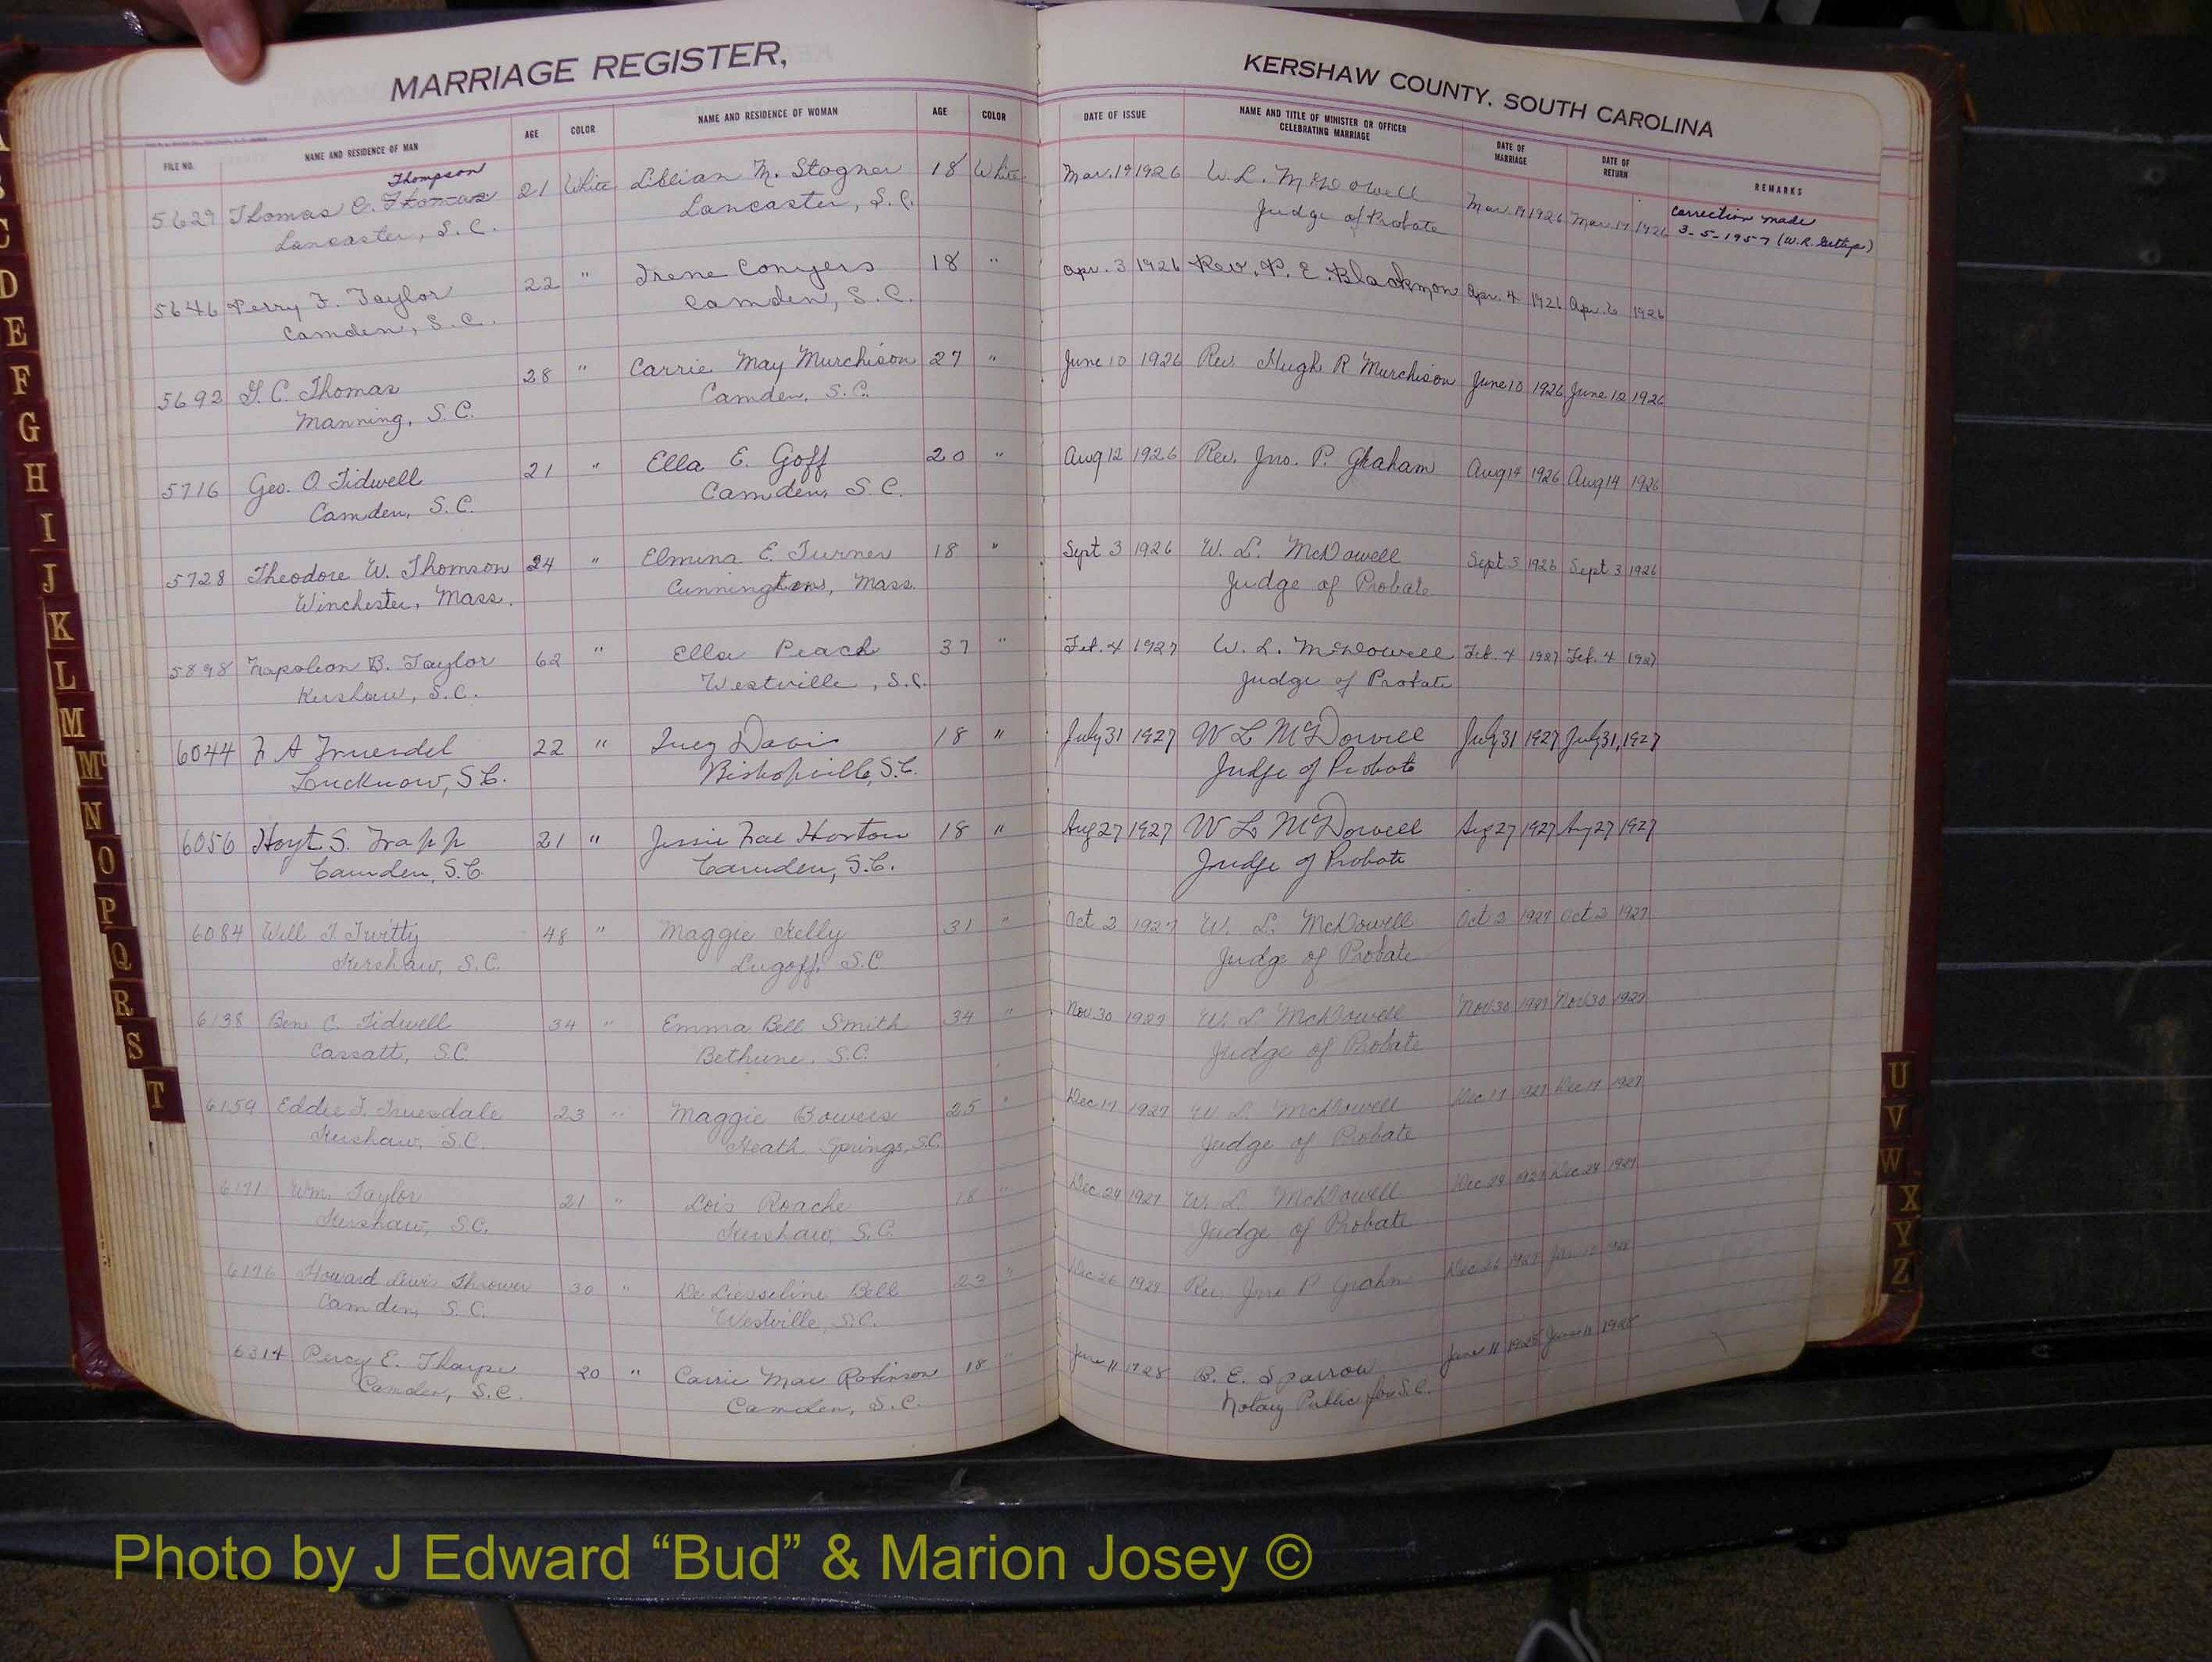 MARRIAGE REGISTER,
KERSHAW COUNTY, SOUTH CAROLINA
FILE NO. NAME AND RESIDENCE OF MAN AGE COLOR NAME AND RESIDENCE OF WOMAN AGE COLOR DATE OF ISSUE NAME AND TITLE OF MINISTER OR OFFICER CELEBRATING MARRIAGE DATE OF MARRIAGE DATE OF RETURN REMARKS
Thompson
5629 Thomas C. Thomas 21 White Lillian M. Stogner 18 White Mar. 19 1926 W. L. McDowell Mar 19 1926 Mar. 19 1926 Correction made
Lancaster, S.C. Lancaster, S.C. Judge of Probate 3-5-1957
5646 Perry F. Taylor 22 " Irene Conyers 18 " Apr. 3 1926 Rev. P. E. Blackmon Apr. 4 1926 Apr. 6 1926
Camden, S.C. Camden, S.C.
5692 G. C. Thomas 28 " Carrie May Murchison 27 " June 10 1926 Rev. Hugh R Murchison June 10 1926 June 12 1926
Manning, S.C. Camden, S.C.
5716 Geo. O Tidwell 21 " Ella E. Goff 20 " Aug 12 1926 Rev. Jno. P. Graham Aug 14 1926 Aug 14 1926
Camden, S.C. Camden, S.C.
5728 Theodore W. Thomson 24 " Elmina E. Turner 18 " Sept 3 1926 W. L. McDowell Sept 3 1926 Sept 3 1926
Winchester, Mass. Cunningtons, Mass. Judge of Probate
5898 Napoleon B. Taylor 62 " Ella Peach 37 " Feb. 4 1927 W. L. McDowell Feb. 4 1927 Feb. 4 1927
Kershaw, S.C. Westville, S.C. Judge of Probate
6044 22 " Inez Davis 18 " July 31 1927 W L McDowell July 31 1927 July 31, 1927
Lucknow, S.C. Bishopville, S.C. Judge of Probate
6056 Hoyt S. Trapp 21 " Jessie Mae Horton 18 " Aug 27 1927 W L McDowell Aug 27 1927 Aug 27 1927
Camden, S.C. Camden, S.C. Judge of Probate
6084 Will T Twitty 48 " Maggie Kelly 31 " Oct 2 1927 W. L. McDowell Oct 2 1927 Oct 2 1927
Kershaw, S.C. Lugoff, S.C. Judge of Probate
6138 Ben C. Tidwell 34 " Emma Bell Smith 34 " Nov. 30 1927 W. L McDowell Nov 30 1927 Nov 30 1927
Cassatt, S.C. Bethune, S.C. Judge of Probate
6159 Eddie T. Truesdale 23 " Maggie Bowers 25 " Dec. 17 1927 W. L. McDowell Dec. 17 1927 Dec 17 1927
Kershaw, S.C. Heath Springs, S.C. Judge of Probate
6171 Wm. Taylor 21 " Lois Roache 18 " Dec. 24 1927 W. L. McDowell Dec 24 1927 Dec 24 1927
Kershaw, S.C. Kershaw, S.C. Judge of Probate
Howard Lewis Thrower 30 " De Liesseline Bell 23 " Dec 26 1927 Rev. Jno P Dec 26 1927
Camden, S.C. Westville, S.C.
6314 Percy E. Tharpe 20 " Carrie Mae Robinson 18 " June 11 1928 B. E. Sparrow June 11 1928 June 11 1928
Camden, S.C. Camden, S.C. Notary Public for S.C.
D
E
F
G
H
I
J
K
L
M
Mc
N
O
P
Q
R
S
T
U
V
W
X
Y
Z
Photo by J Edward “Bud” & Marion Josey ©